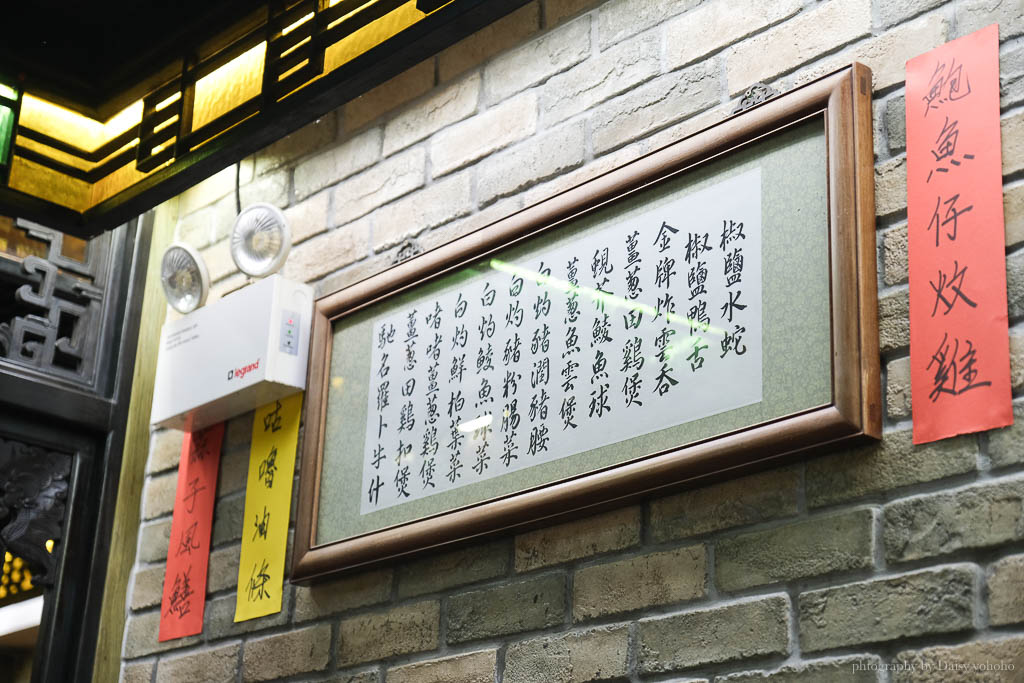 鮑魚仔炆雞
椒鹽水蛇
椒鹽鴨舌
金牌炸雲吞
薑蔥田雞煲
鯪魚球
薑蔥魚雲煲
白灼豬潤豬腰
白灼豬粉腸菜
白灼鯪魚球菜
白灼鮮柏葉菜
啫啫薑蔥雞煲
薑蔥田雞扣煲
馳名羅卜牛什
咕嚕油條
子風鱔
legrand
photography by Daisy yohoho